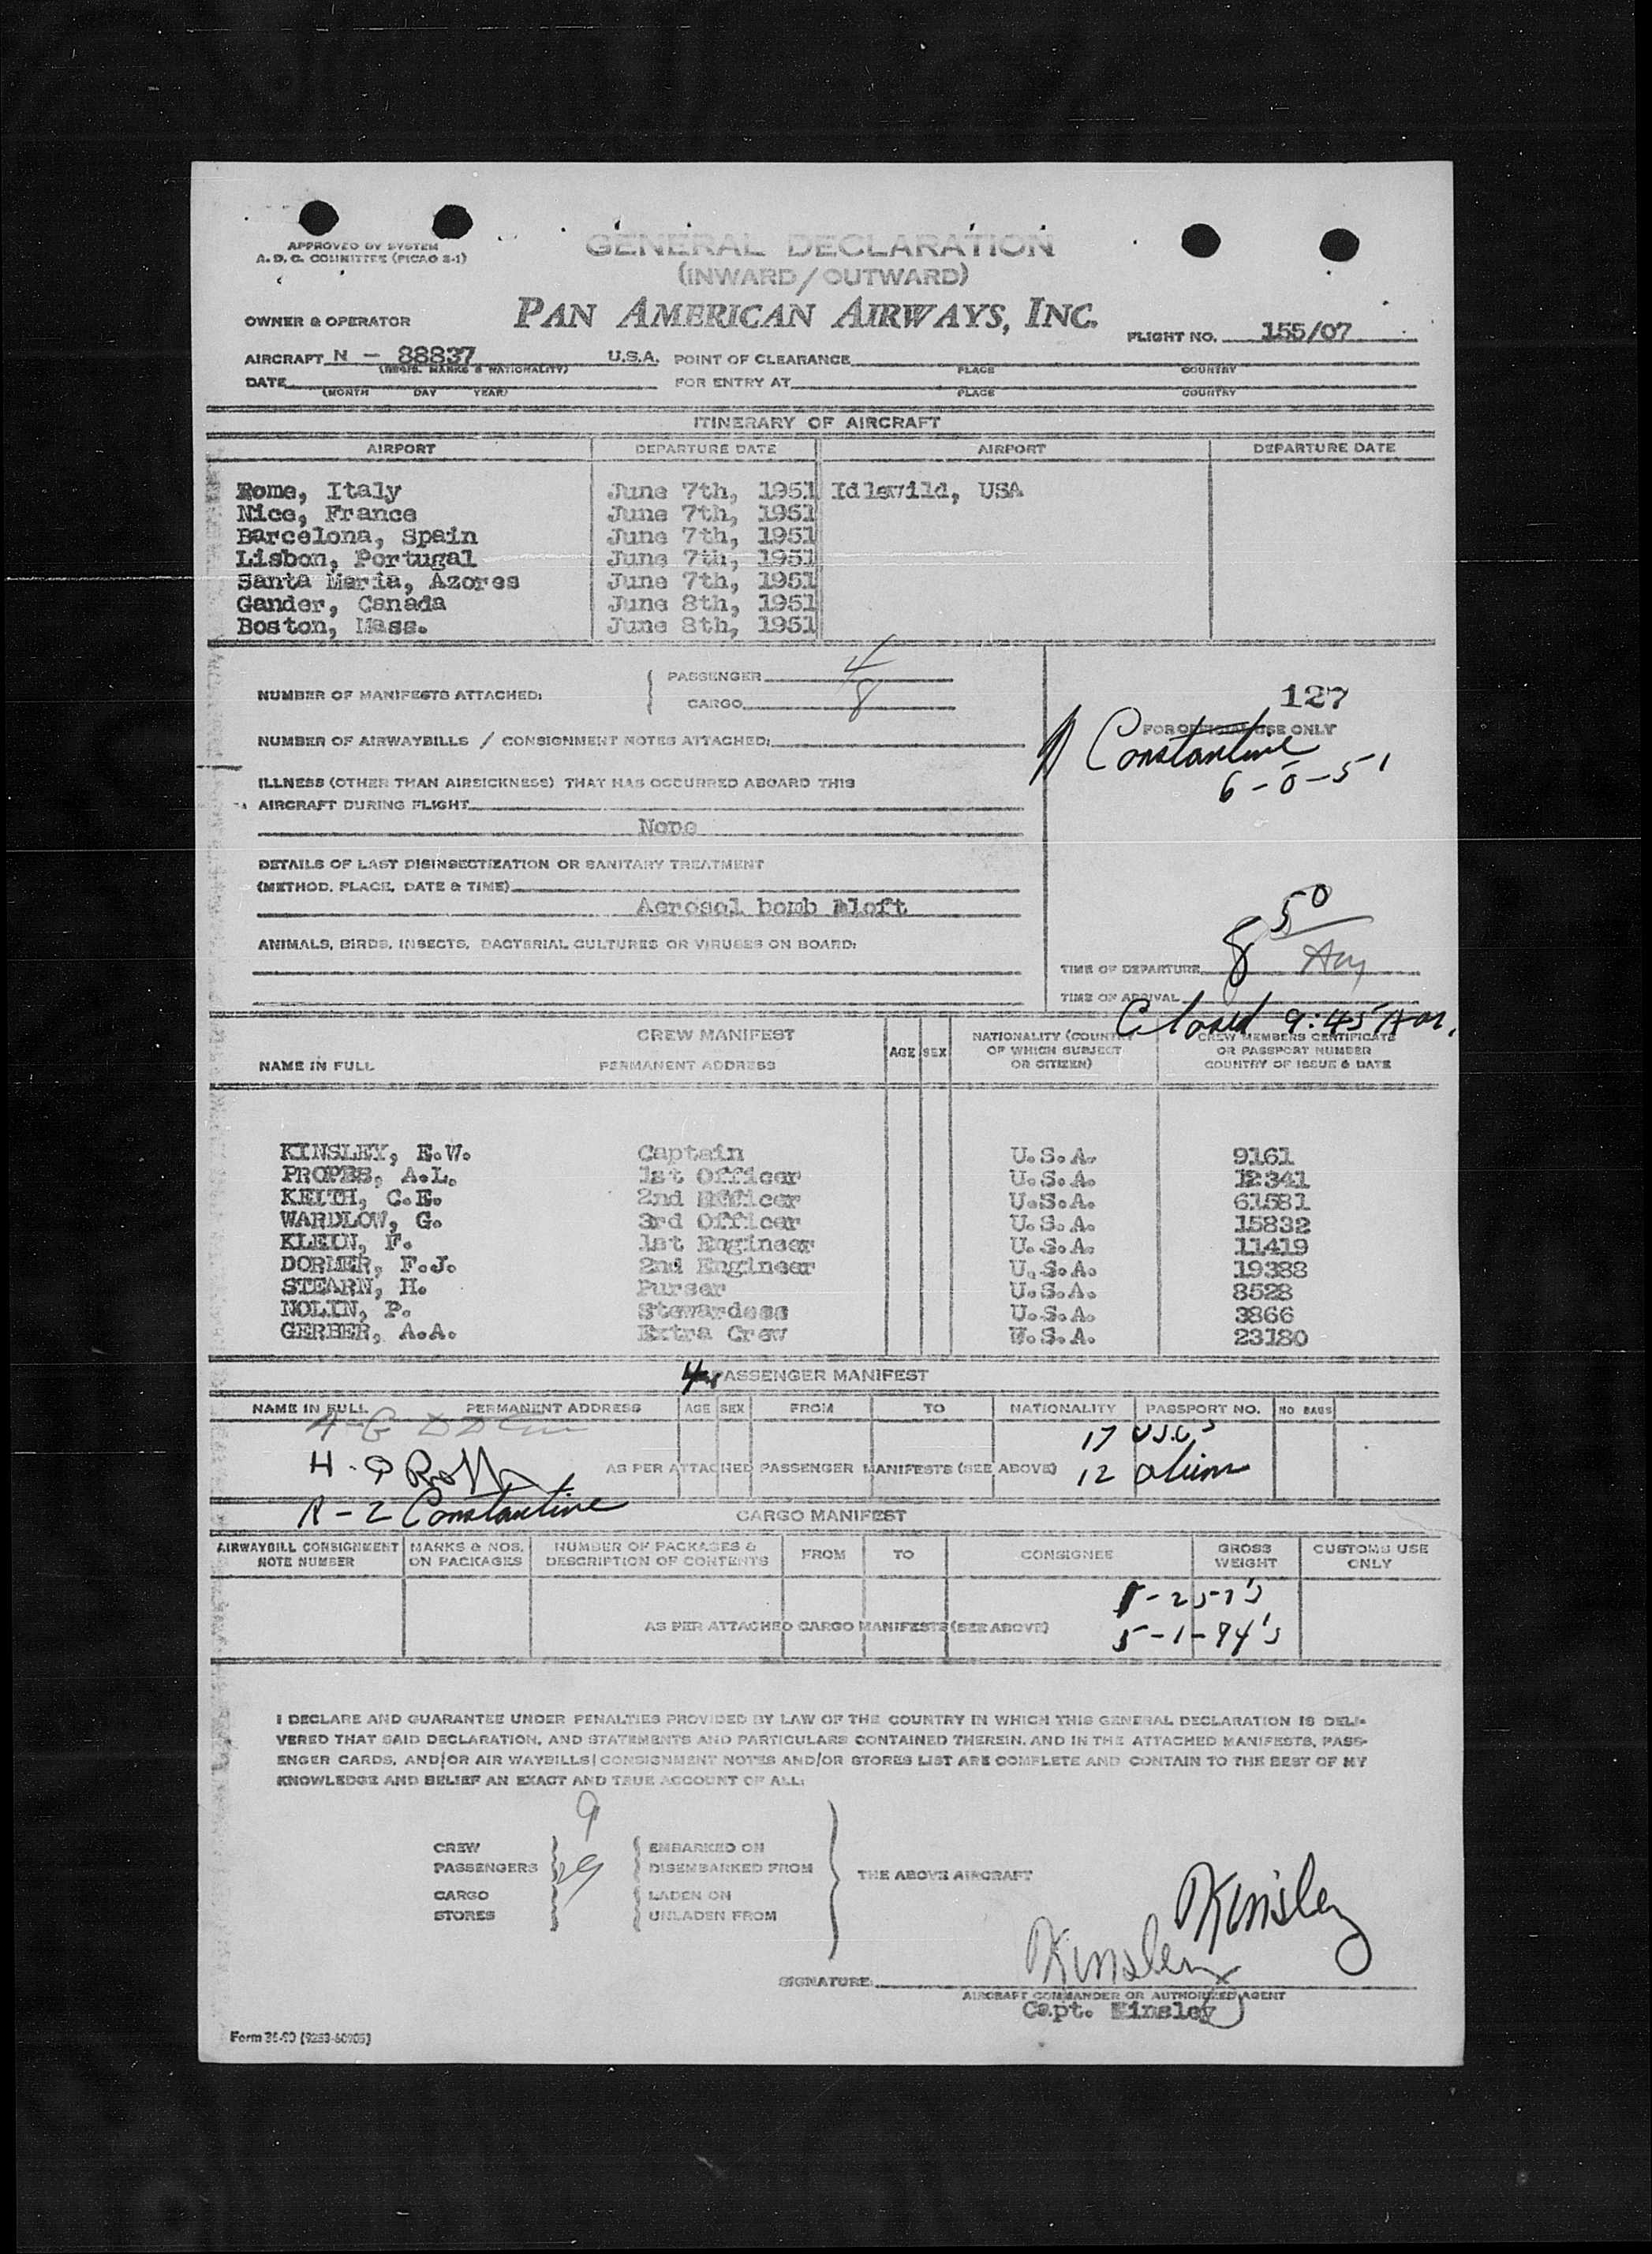 APPROVED BY SYSTEM
A. D. C. COMMITTEE (PICAO 2-1)
GENERAL DECLARATION
(INWARD/OUTWARD)
OWNER & OPERATOR PAN AMERICAN AIRWAYS, INC. FLIGHT NO. 155/07
AIRCRAFT N - 88837 U.S.A. POINT OF CLEARANCE
(REGIS. MARKS & NATIONALITY) PLACE COUNTRY
DATE FOR ENTRY AT
(MONTH DAY YEAR) PLACE COUNTRY
ITINERARY OF AIRCRAFT
AIRPORT DEPARTURE DATE AIRPORT DEPARTURE DATE
Rome, Italy June 7th, 1951 Idlewild, USA
Nice, France June 7th, 1951
Barcelona, Spain June 7th, 1951
Lisbon, Portugal June 7th, 1951
Santa Maria, Azores June 7th, 1951
Gander, Canada June 8th, 1951
Boston, Mass. June 8th, 1951
NUMBER OF MANIFESTS ATTACHED:
PASSENGER 4
CARGO 8
127
FOR OFFICIAL USE ONLY
Constantine
NUMBER OF AIRWAYBILLS / CONSIGNMENT NOTES ATTACHED:
ILLNESS (OTHER THAN AIRSICKNESS) THAT HAS OCCURRED ABOARD THIS
AIRCRAFT DURING FLIGHT
None
DETAILS OF LAST DISINSECTIZATION OR SANITARY TREATMENT
(METHOD, PLACE, DATE & TIME)
Aerosol bomb aloft
ANIMALS, BIRDS, INSECTS, BACTERIAL CULTURES OR VIRUSES ON BOARD:
TIME OF DEPARTURE 8 50 Am
TIME OF ARRIVAL
Closed 9:45 Am.
CREW MANIFEST
NAME IN FULL PERMANENT ADDRESS AGE SEX NATIONALITY (COUNTRY OF WHICH SUBJECT OR CITIZEN) CREW MEMBERS CERTIFICATE OR PASSPORT NUMBER COUNTRY OF ISSUE & DATE
KINSLEY, E.W. Captain U.S.A. 9161
PROPES, A.L. 1st Officer U.S.A. 12341
KEITH, C.E. 2nd Officer U.S.A. 61581
WARDLOW, G. 3rd Officer U.S.A. 15832
KLEIN, F. 1st Engineer U.S.A. 11419
DORMER, F.J. 2nd Engineer U.S.A. 19388
STEARN, H. Purser U.S.A. 8528
NOLIN, P. Stewardess U.S.A. 3866
GERBER, A.A. Extra Crew U.S.A. 23180
PASSENGER MANIFEST
NAME IN FULL PERMANENT ADDRESS AGE SEX FROM TO NATIONALITY PASSPORT NO. NO BAGS
17 USC's
AS PER ATTACHED PASSENGER MANIFESTS (SEE ABOVE) 12 aliens
Constantine
CARGO MANIFEST
AIRWAYBILL CONSIGNMENT NOTE NUMBER MARKS & NOS. ON PACKAGES NUMBER OF PACKAGES & DESCRIPTION OF CONTENTS FROM TO CONSIGNEE GROSS WEIGHT CUSTOMS USE ONLY
AS PER ATTACHED CARGO MANIFESTS (SEE ABOVE)
I DECLARE AND GUARANTEE UNDER PENALTIES PROVIDED BY LAW OF THE COUNTRY IN WHICH THIS GENERAL DECLARATION IS DELI-
VERED THAT SAID DECLARATION, AND STATEMENTS AND PARTICULARS CONTAINED THEREIN, AND IN THE ATTACHED MANIFESTS, PASS-
ENGER CARDS, AND/OR AIR WAYBILLS/CONSIGNMENT NOTES AND/OR STORES LIST ARE COMPLETE AND CONTAIN TO THE BEST OF MY
KNOWLEDGE AND BELIEF AN EXACT AND TRUE ACCOUNT OF ALL:
CREW 9 EMBARKED ON
PASSENGERS 29 DISEMBARKED FROM THE ABOVE AIRCRAFT
CARGO LADEN ON
STORES UNLADEN FROM
Kinsley
Kinsley
SIGNATURE:
AIRCRAFT COMMANDER OR AUTHORIZED AGENT
Capt. Kinsley
Form 36-90 (9253-60905)